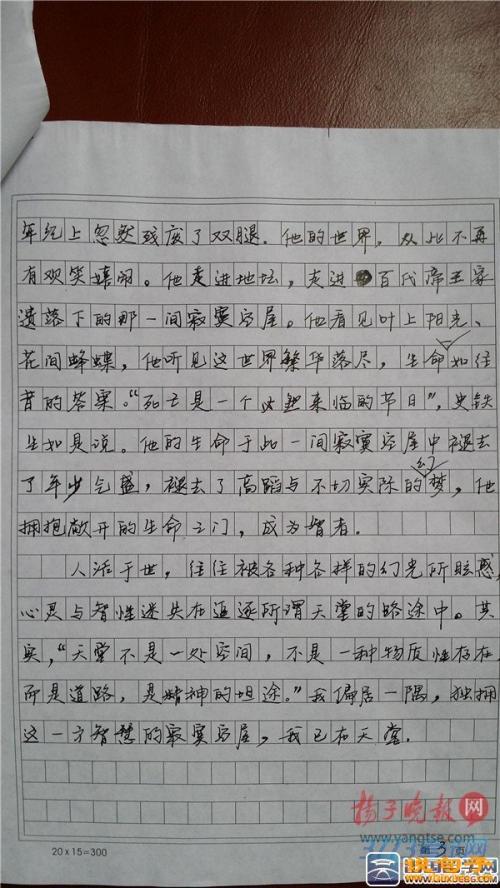 年纪上忽然残废了双腿。他的世界，从此不再
有欢笑嬉闹。他走进地坛，走进百代帝王家
遗落下的那一间寂寞空屋。他看见叶上阳光、
花间蜂蝶，他听见这世界繁华落尽，生命如往
昔的答案。“死亡是一个必然来临的节日”，史铁
生如是说。他的生命于此一间寂寞空屋中褪去
了年少气盛，褪去了高蹈与不切实际的幻梦，他
拥抱敞开的生命之门，成为智者。
人活于世，往往被各种各样的幻光所眩惑
心灵与智性迷失在追逐所谓天堂的路途中。其
实，“天堂不是一处空间，不是一种物质性存在
而是道路，是精神的坦途。”我偏居一隅，独拥
这一方智慧的寂寞空屋，我已在天堂。
扬子晚报网
www.yangtse.com
20×15=300
第3页